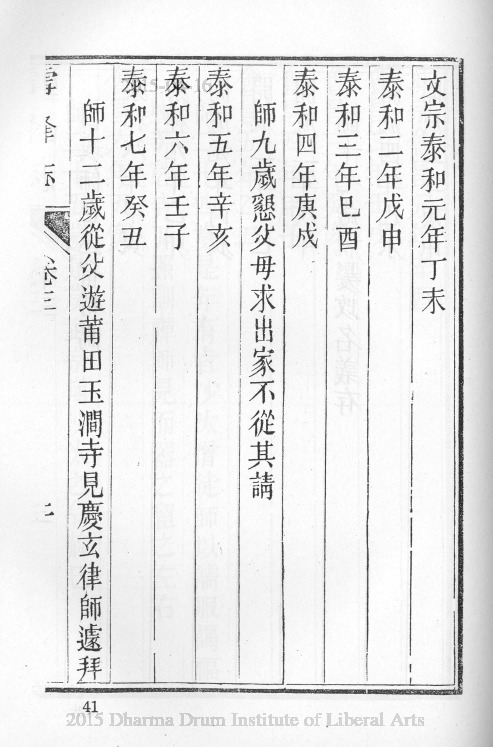 文宗泰和元年丁未
泰和二年戊申
泰和三年已酉
泰和四年庚戍
師九歲懇父母求出家不從其請
泰和五年辛亥
泰和六年壬子
泰和七年癸丑
師十二歲從父遊莆田玉澗寺見慶玄律師遽拜
卷三
41
2015 Dharma Drum Institute of Liberal Arts